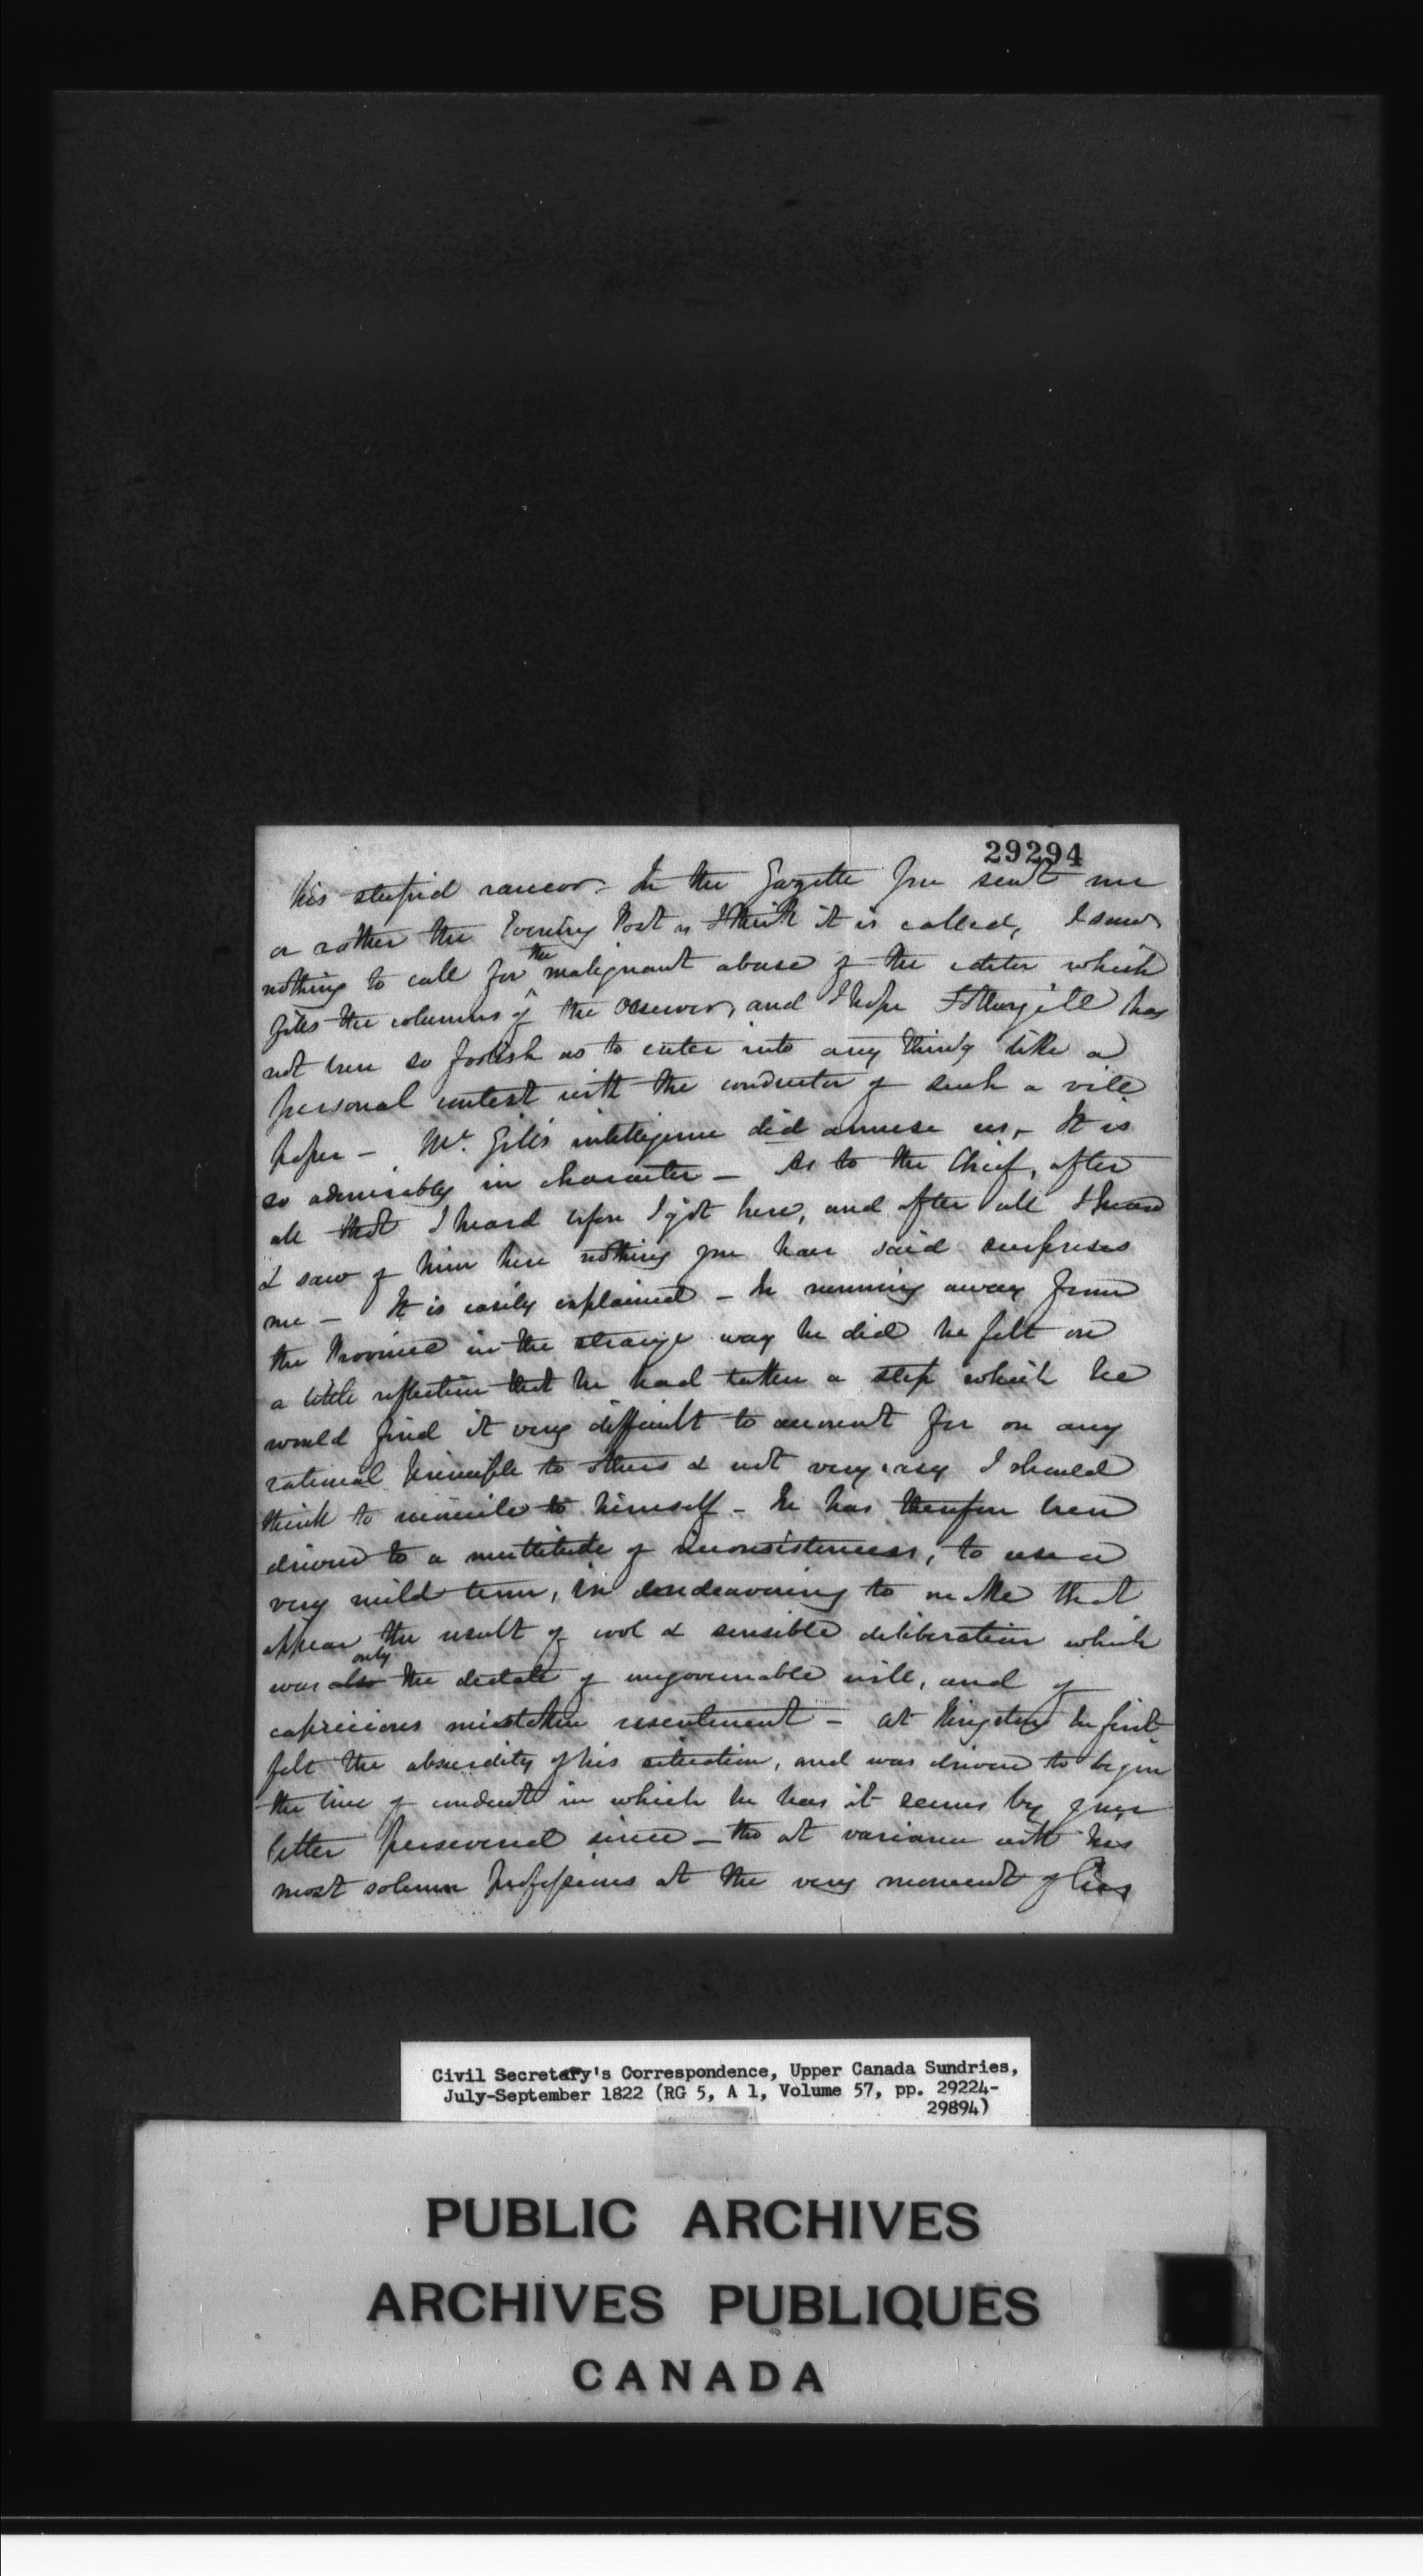 29294
his stupid rancor. In the Gazette you sent me
or rather the Evening Post as I think it is called, I saw
nothing to call for the malignant abuse of the editor which
fills the columns of the Observer, and I hope Fothergill has
not been so foolish as to enter into any thing like a
personal contest with the conductor of such a vile
paper – Mr. Giles intelligence did amuse us, – It is
so admirably in character – As to the Chief, after
all that I heard before I got here, and after all I heard
& saw of him here nothing you have said surprises
me – It is easily explained – In running away from
the Province in the strange way he did he felt on
a little reflection that he had taken a step which he
would find it very difficult to account for on any
rational principle to others & not very easy I should
think to reconcile to himself – He has therefore been
driven to a multitude of inconsistencies, to use a
very mild term, in endeavoring to make that
appear the result of cool & sensible deliberation which
was also only the dictate of ungovernable will, and of
capricious mistaken resentment – at Kingston he first
felt the absurdity of his situation, and was driven to begin
the line of conduct in which he has it seems by your
letter persevered since – tho at variance with his
most solemn professions at the very moment of his
Civil Secretary's Correspondence, Upper Canada Sundries,
July-September 1822 (RG 5, A 1, Volume 57, pp. 29224-
29894)
PUBLIC ARCHIVES
ARCHIVES PUBLIQUES
CANADA